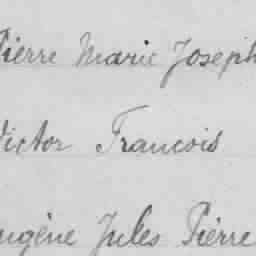 Pierre Marie Joseph
Victor Francois
Eugène Jules Pierre